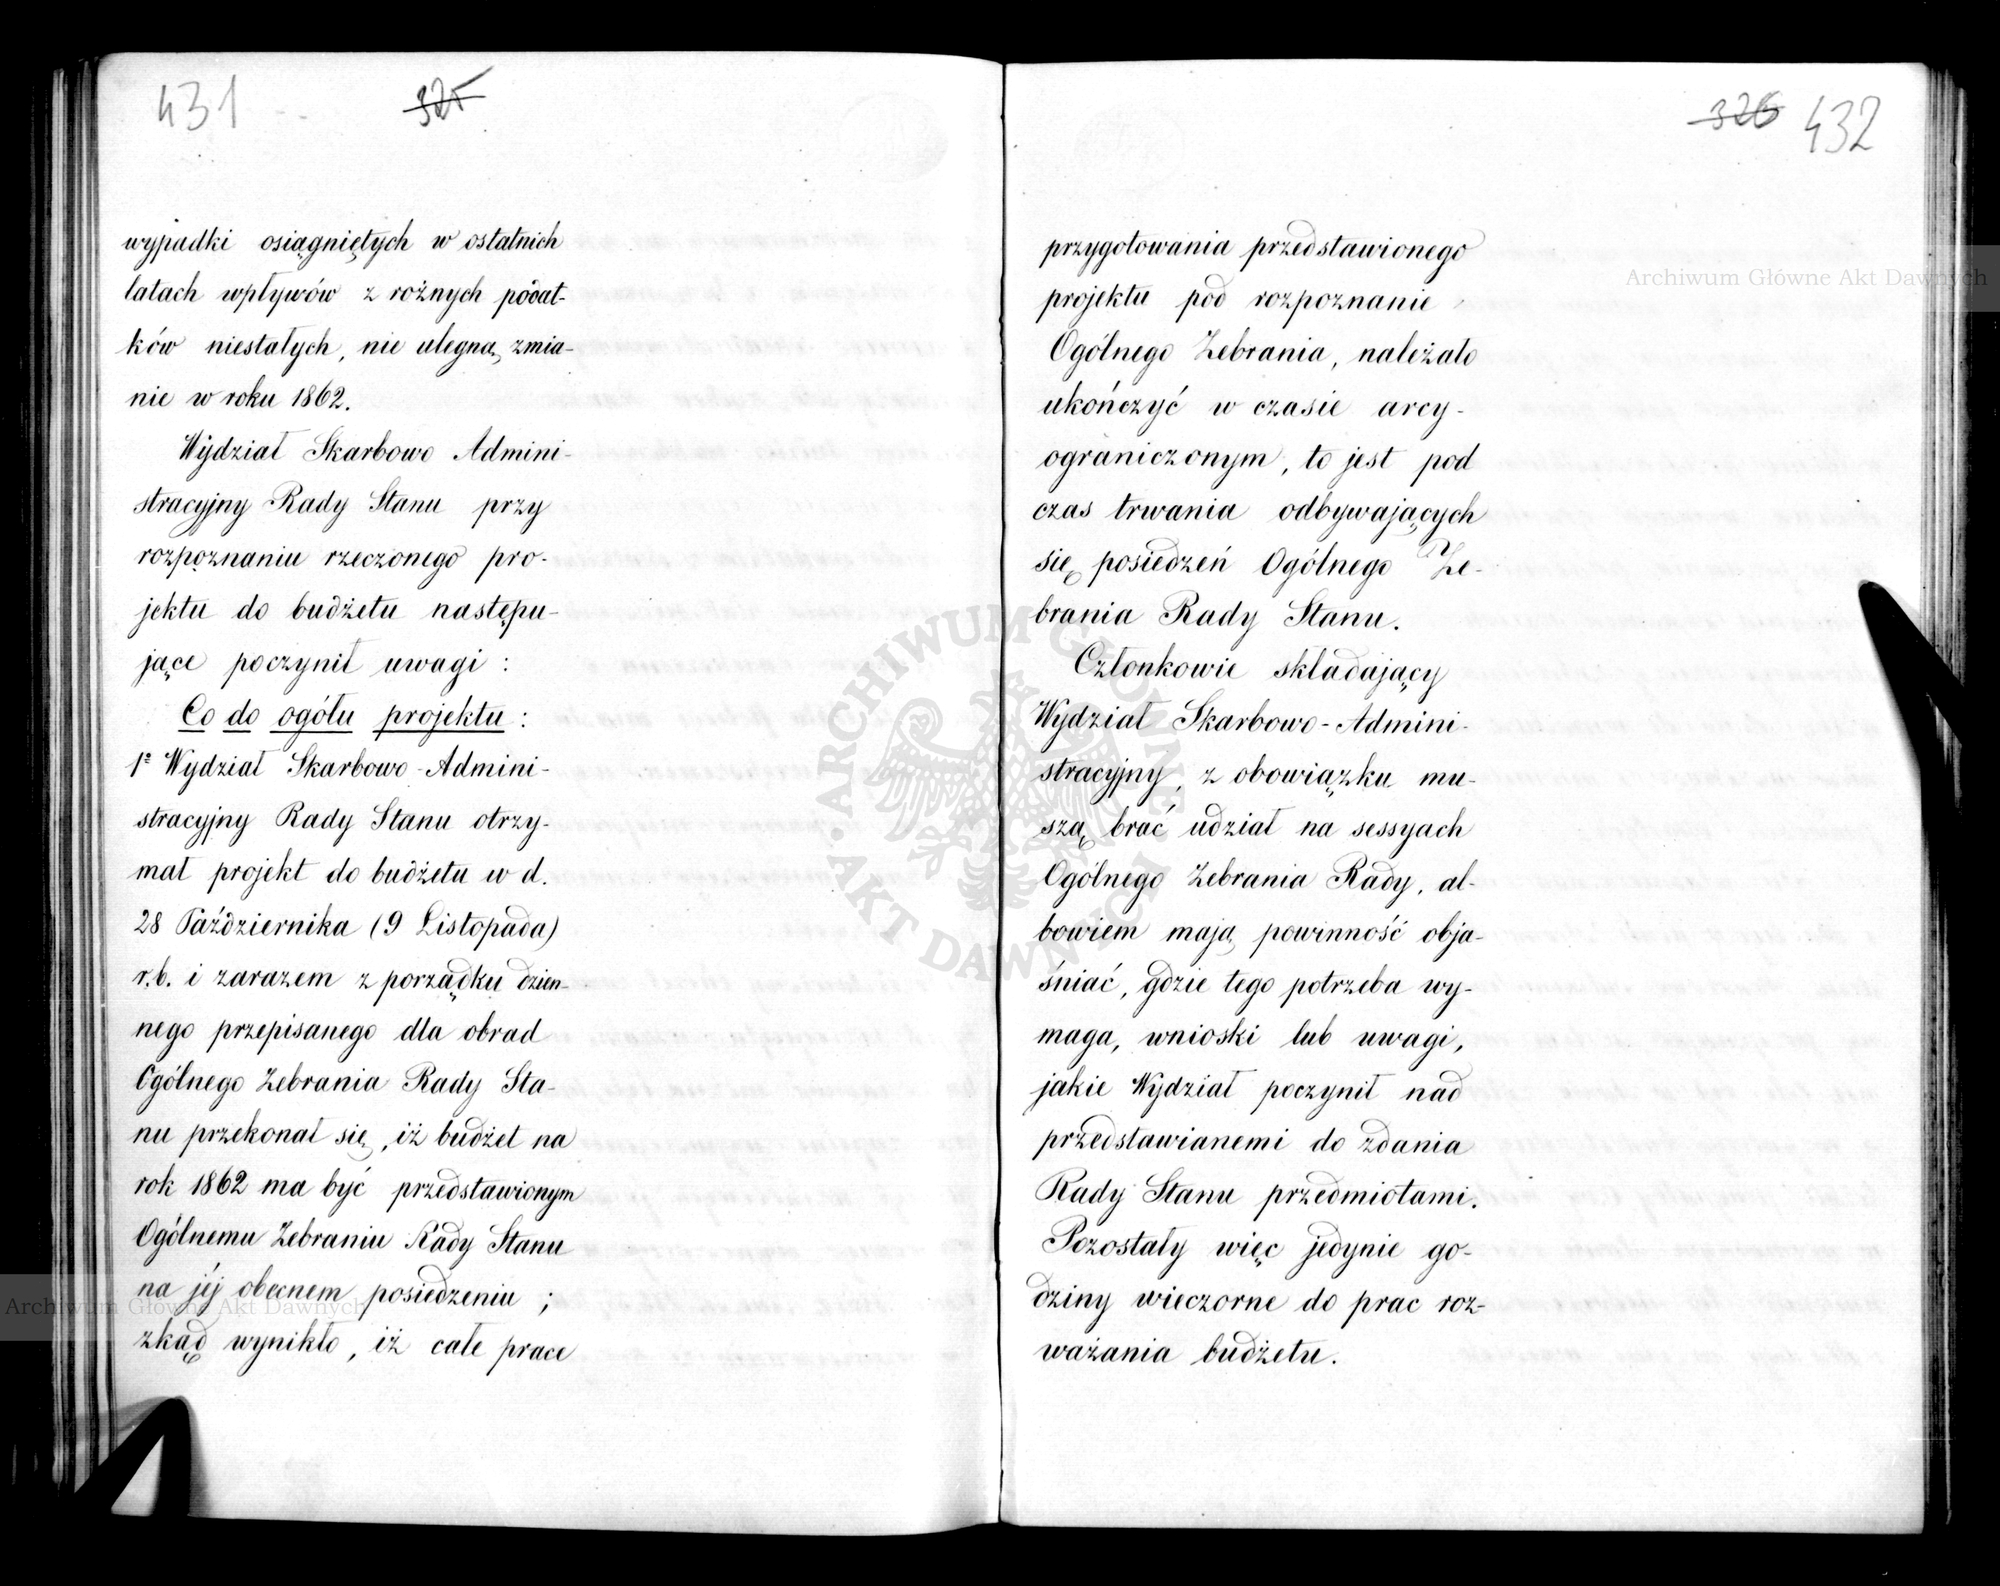 431 325
wypadki osiągniętych w ostatnich
latach wpływów z rożnych podat-
ków niestałych, nie ulegną zmia-
nie w roku 1862.
Wydział Skarbowo Admini-
stracyjny Rady Stanu przy
rozpoznaniu rzeczonego pro-
jektu do budżetu następu-
jące poczynił uwagi :
Co do ogółu projektu :
1º Wydział Skarbowo-Admini-
stracyjny Rady Stanu otrzy-
mał projekt do budżetu w d.
28 Października (9 Listopada)
r.b. i zarazem z porządku dzien-
nego przepisanego dla obrad
Ogólnego Zebrania Rady Sta-
nu przekonał się, iż budżet na
rok 1862 ma być przedstawionym
Ogólnemu Zebraniu Rady Stanu
na jéj obecnem posiedzeniu ;
zkąd wynikło, iż całe prace
326 432
przygotowania przedstawionego
projektu pod rozpoznanie
Ogólnego Zebrania, należało
ukończyć w czasie arcy-
ograniczonym, to jest pod
czas trwania odbywających
się posiedzeń Ogólnego Ze-
brania Rady Stanu.
Członkowie składający
Wydział Skarbowo-Admini-
stracyjny, z obowiązku mu-
szą brać udział na sessyach
Ogólnego Zebrania Rady, al-
bowiem mają powinność obja-
śniać, gdzie tego potrzeba wy-
maga, wnioski lub uwagi,
jakie Wydział poczynił nad
przedstawianemi do zdania
Rady Stanu przedmiotami.
Pozostały więc jedynie go-
dziny wieczorne do prac roz-
ważania budżetu.
Archiwum Główne Akt Dawnych
Archiwum Główne Akt Dawnych
ARCHIWUM GŁÓWNE AKT DAWNYCH